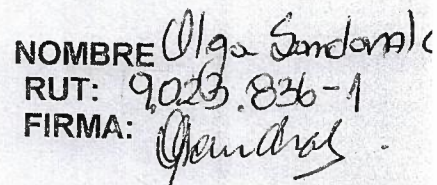 NOMBRE Olga Sandoval
RUT: 9.023.836-1
FIRMA: